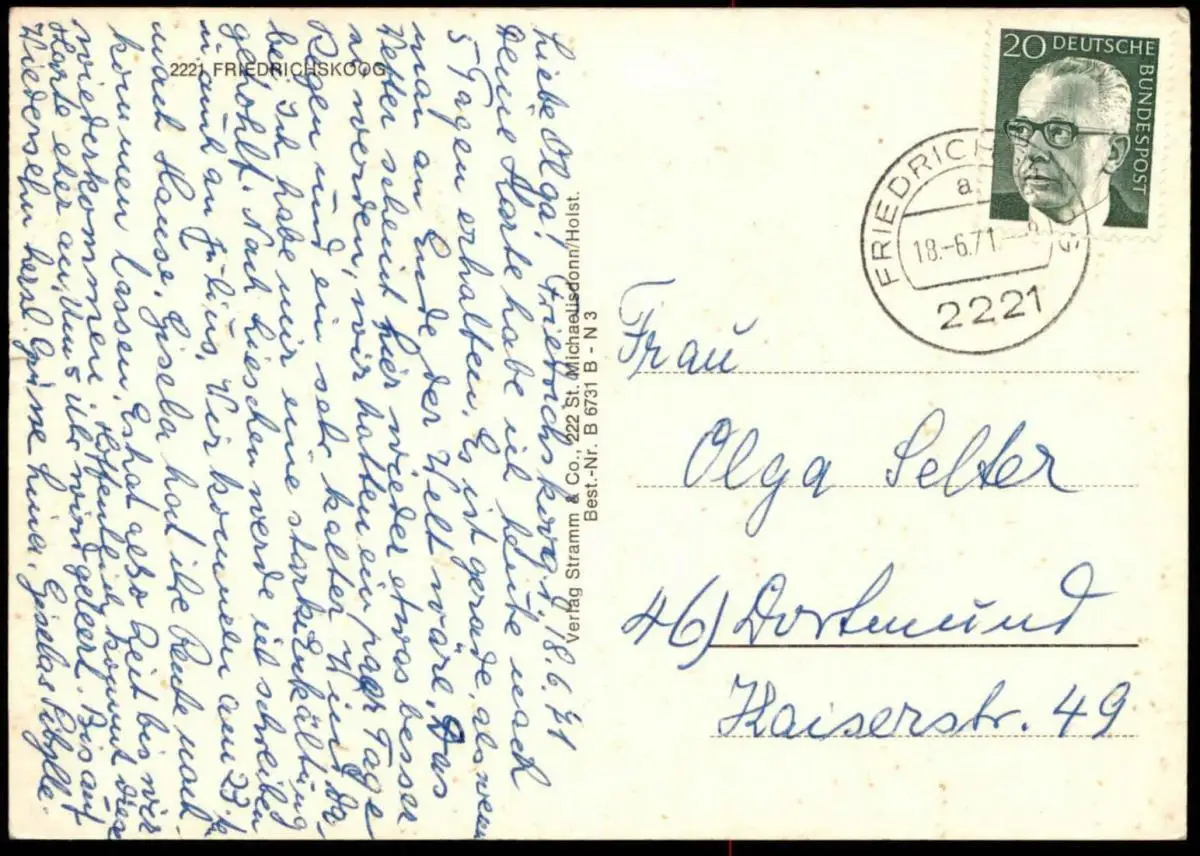 2221 FRIEDRICHSKOOG
Liebe Olga! Friedrichskoog, 18.6.71
Deine Karte habe ich heute nach
5 Tagen erhalten. Es ist gerade, als wenn
man am Ende der Welt wäre. Das
Wetter scheint hier wieder etwas besser
zu werden, wir hatten ein paar Tage
Regen und ein sehr kalter Wind da-
bei. Ich habe mir eine starke Erkältung
geholt. Nach Lieschen werde ich schreiben
u. auch an Julius. Wir kommen am 23. 6.
nach Hause. Gisela hat ihre Leute nach-
kommen lassen. Es hat also Zeit bis wir
wiederkommen. Hoffentlich kommt diese
Karte eher an. Um 5 Uhr wird geleert. Bis auf
Wiedersehn herzl. Grüsse Luise, Giselas Sibylle.
Verlag Stramm & Co., 222 St. Michaelisdonn/Holst.
Best.-Nr. B 6731 B - N 3
20 DEUTSCHE
BUNDESPOST
FRIEDRICHSKOOG
a
18.-6.71.-8
2221
Frau
Olga Selter
46) Dortmund
Kaiserstr. 49